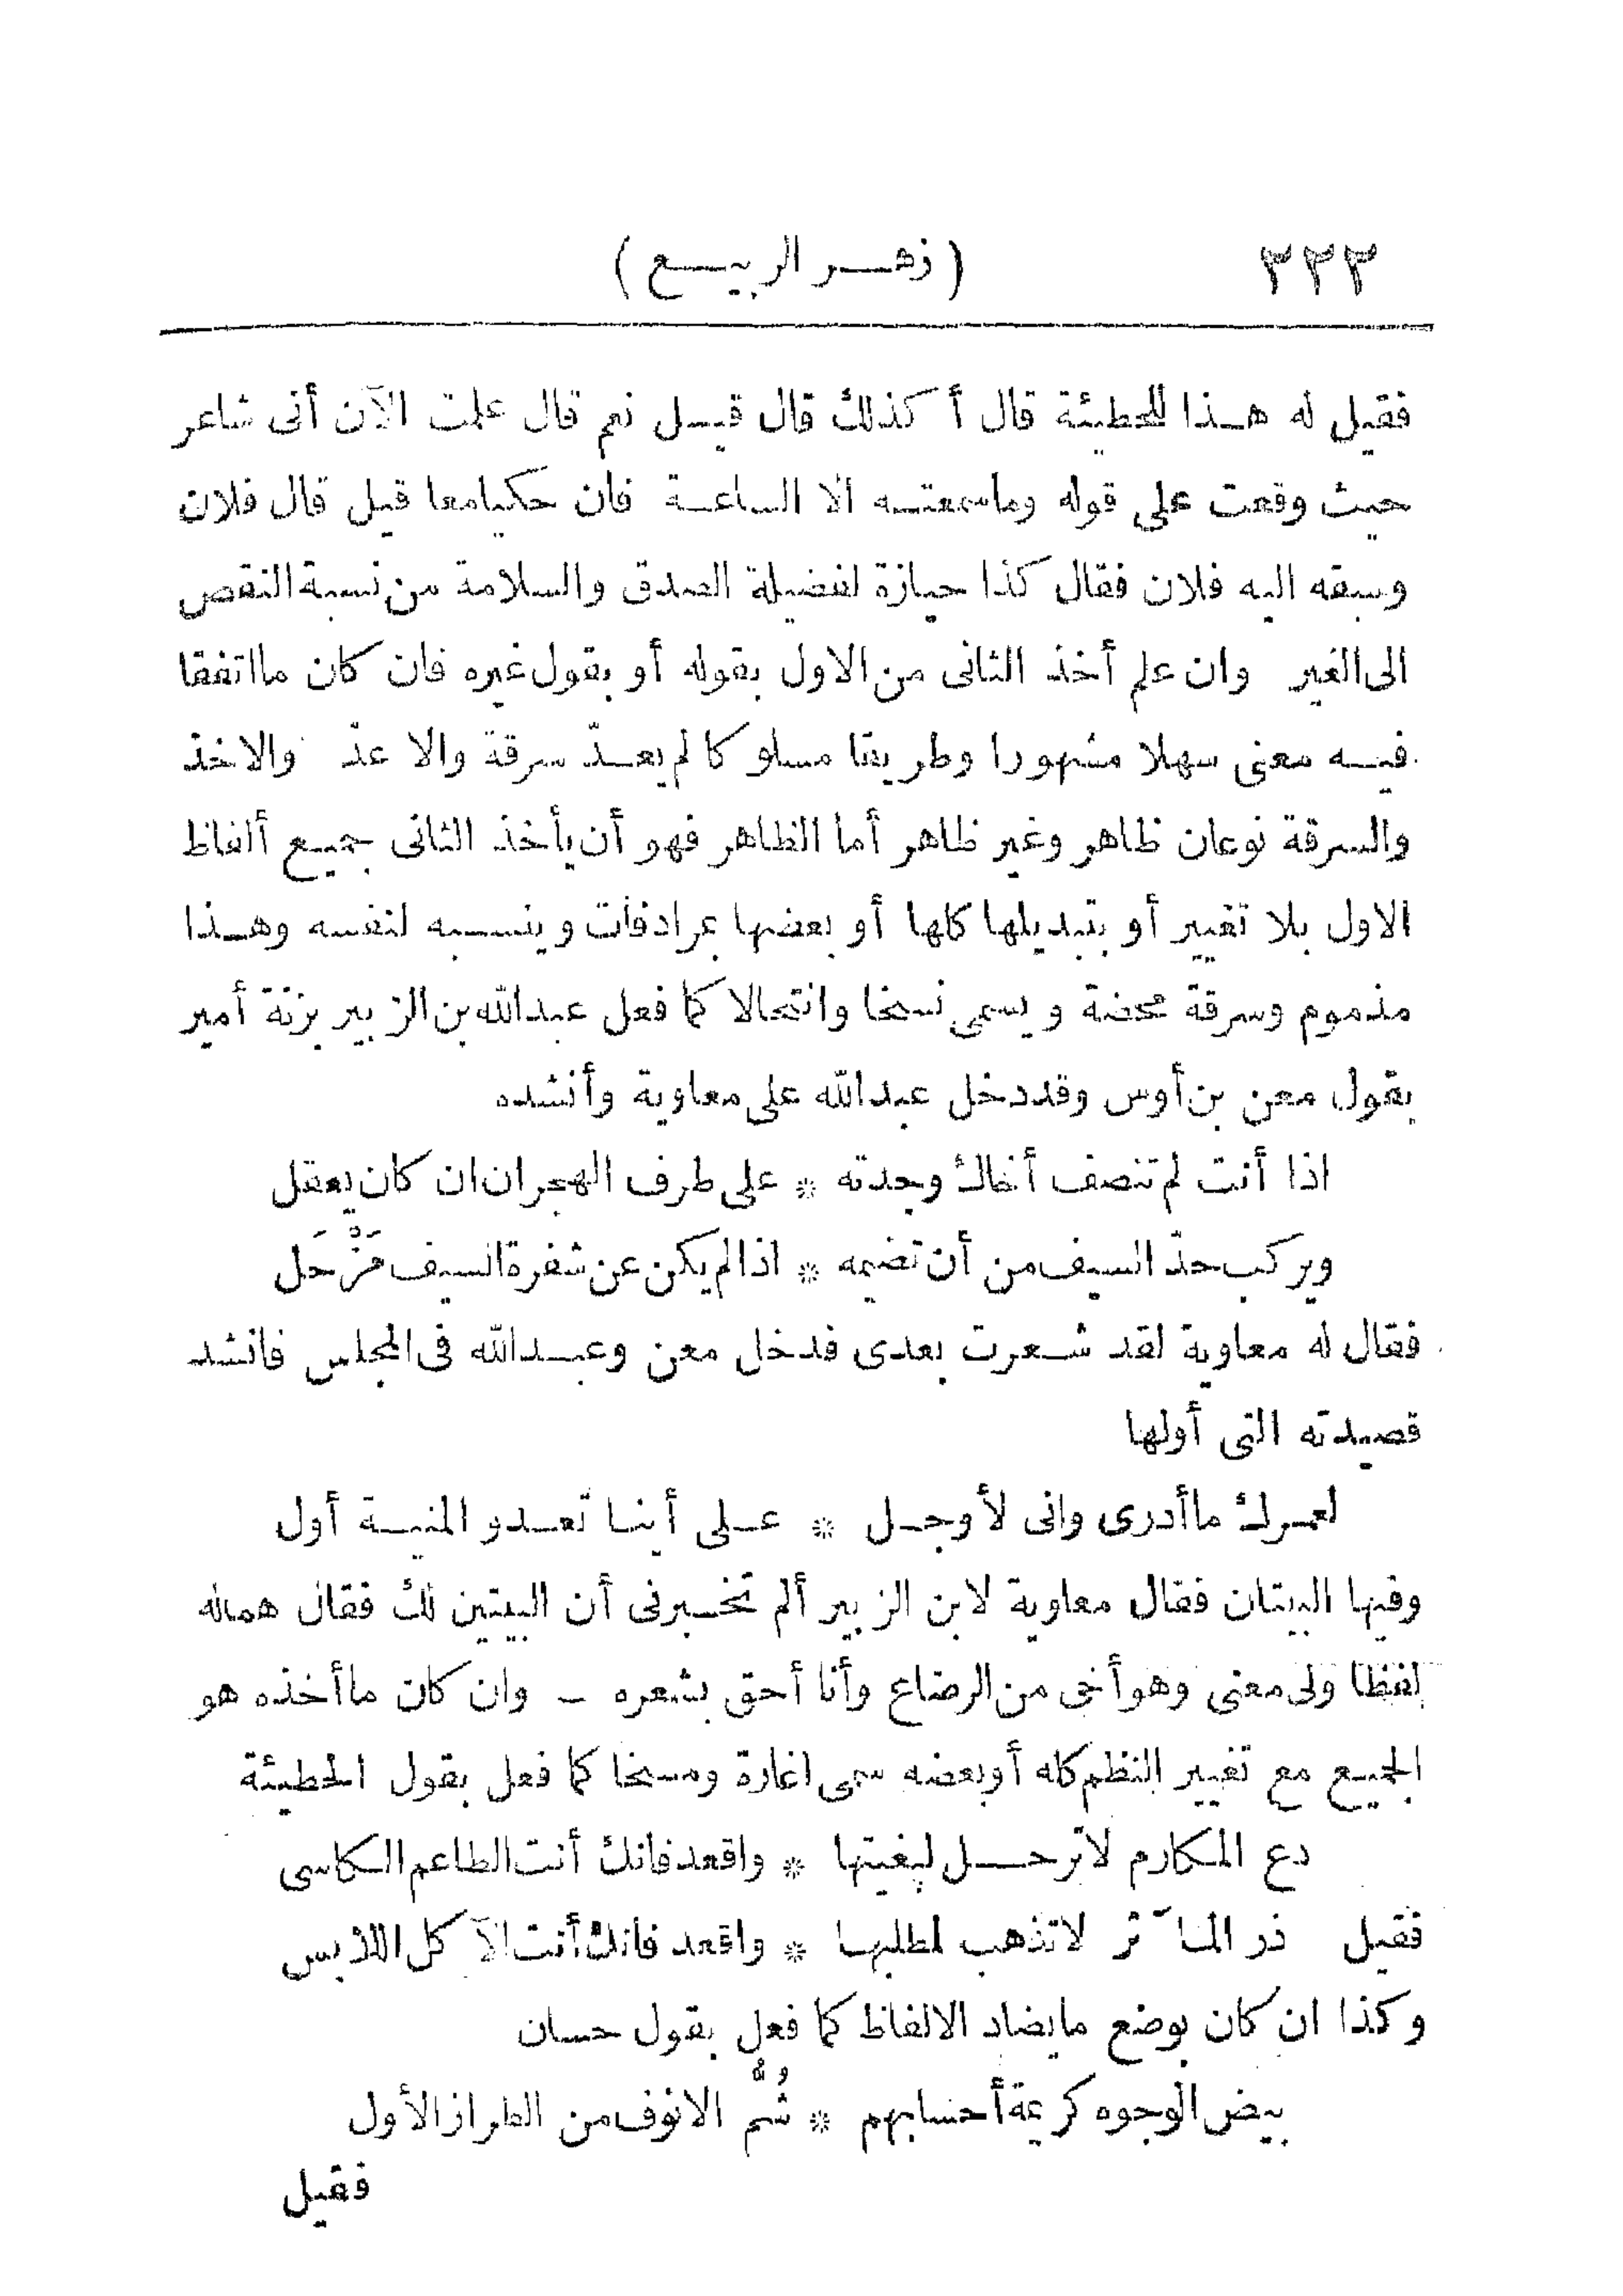 ٢٣٣ (زهـر الربيـع)
فقيل له هـذا للحطيئة قال أكذلك قال قيـل نعم قال علمت الآن أنى شاعر
حيث وقعت على قوله وما سمعتـه الا الساعـة فان حكيا معا قيل قال فلان
وسبقه اليه فلان فقال كذا حيازة لفضيلة الصدق والسلامة من نسبة النقص
الى الغير وان علم أخذ الثانى من الاول بقوله أو بقول غيره فان كان ما اتفقا
فيـه معنى سهلا مشهورا وطريقا مسلوكا لم يعـدّ سرقة والا عدّ والاخذ
والسرقة نوعان ظاهر وغير ظاهر أما الظاهر فهو أن يأخذ الثانى جميـع ألفاظ
الاول بلا تغيير أو بتبديلها كلها أو بعضها بمرادفات وينسـبه لنفسه وهـذا
مذموم وسرقة محضة ويسمى نسخا وانتحالا كما فعل عبد الله بن الزبير بزنة أمير
بقول معن بن أوس وقد دخل عبد الله على معاوية وأنشده
اذا أنت لم تنصف أخاك وجدته * على طرف الهجران ان كان يعقل
ويركب حدّ السيف من أن تضيمه * اذا لم يكن عن شفرة السيف مَزْحَل
فقال له معاوية لقد شـعرت بعدى فدخل معن وعبـد الله فى المجلس فانشد
قصيدته التى أولها
لعمـرك ما أدرى وانى لأوجـل * عـلى أينـا تعـدو المنيـة أول
وفيها البيتان فقال معاوية لابن الزبير ألم تخـبرنى أن البيتين لك فقال هما له
لفظا ولى معنى وهو أخى من الرضاع وأنا أحق بشعره - وان كان ما أخذه هو
الجميـع مع تغيير النظم كله أو بعضه سمى اغارة ومسخا كما فعل بقول الحطيئة
دع المكارم لا ترحـل لبغيتها * واقعد فانك أنت الطاعم الكاسى
فقيل ذر المآثر لا تذهب لمطلبهـا * واقعد فانك أنت الآكل اللابس
وكذا ان كان بوضع ما يضاد الالفاظ كما فعل بقول حسان
بيض الوجوه كريمة أحسابهم * شُمُّ الانوف من الطراز الأول
فقيل